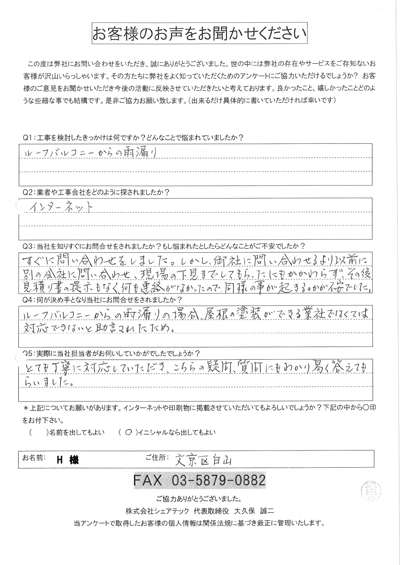 お客様のお声をお聞かせください
この度は弊社にお問い合わせをいただき、誠にありがとうございます。世の中には弊社の存在やサービスをご存知ないお
客様が沢山いらっしゃいます。その方たちに弊社をよく知っていただくためのアンケートにご協力いただけるでしょうか？ お客
様のご意見をお聞かせいただき今後の活動に反映させていただきたいと考えております。良かったこと、嬉しかったことどのよ
うな些細な事でも結構です。是非ご協力お願い致します。（出来るだけ具体的に書いていただければ幸いです）
Q1:工事を検討したきっかけは何ですか？どんなことで悩まれていましたか？
ルーフバルコニーからの雨漏り
Q2:業者や工事会社をどのように探されましたか？
インターネット
Q3:当社を知りすぐにお問合せをされましたか？もし悩まれたとしたらどんなことがご不安でしたか？
すぐに問い合わせをしました。しかし、御社に問い合わせるより以前に
別の会社に問い合わせ、現場の下見までしてもらったにもかかわらず、その後
見積り書の提示もなく何も連絡がなかったので同様の事が起きるのかが不安でした。
Q4:何が決め手となり当社にお問合せをされましたか？
ルーフバルコニーからの雨漏りの場合、屋根の塗装ができる業社でなくては
対応できないと助言されたため。
Q5:実際に当社担当者がお伺いしていかがでしたでしょうか？
とても丁寧に対応していただき、こちらの疑問、質問にもわかり易く答えても
らいました。
＊上記についてお願いがあります。インターネットや印刷物に掲載させていただいてもよろしいでしょうか？下記の中から〇印
をお付下さい。
（ ）名前を出してもよい （〇）イニシャルなら出してもよい
お名前: H 様 ご住所: 文京区白山
FAX 03-5879-0882
ご協力ありがとうございました。
株式会社シェアテック 代表取締役 大久保 誠二
当アンケートで取得したお客様の個人情報は関係法規に基づき厳正に管理いたします。